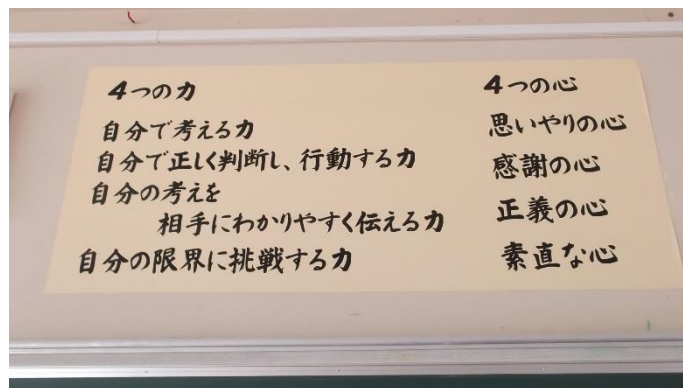 4つの力
自分で考える力
自分で正しく判断し、行動する力
自分の考えを
相手にわかりやすく伝える力
自分の限界に挑戦する力
4つの心
思いやりの心
感謝の心
正義の心
素直な心